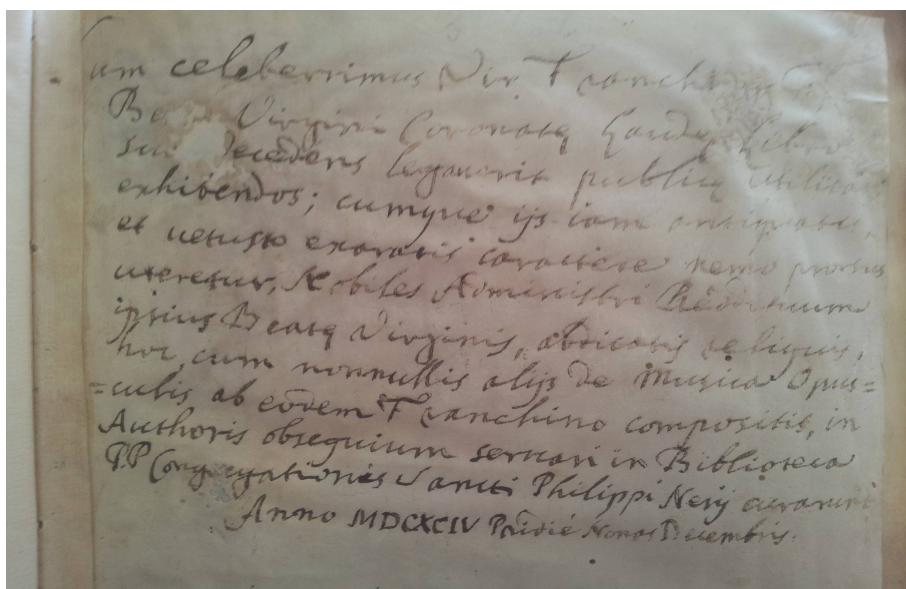 um celeberrimus Vir Franchinus
Beatę Virginis Coronatę Laudę libros
suos decedens legaverit publicę utilitati
exhibendos; cumque ijs iam antiquatis,
et uetusto exaratis caractere nemo prorsus
uteretur, Nobiles Administri
ipsius Beatę Virginis, abdicatis reliquis,
hoc, cum nonnullis alijs de Musica Opus=
=culis ab eodem Franchino compositis, in
Authoris obsequium seruari in Biblioteca
P.P Congregationis Sancti Philippi Nerij curarunt
Anno MDCXCIV Pridie Nonas Decembris.